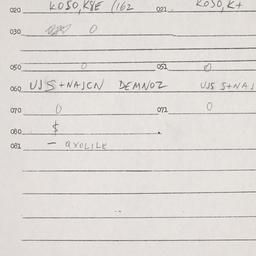 020 KOSO, K8E (162 021 KOSO, K+
030 0
050 0 051 0
060 UJS+NAJCN DEMNOZ UJS S+NAJ
070 0 071 0
080 $
081 - axOLILE